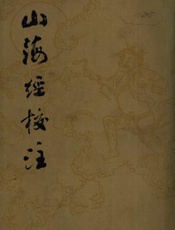 山海经校注